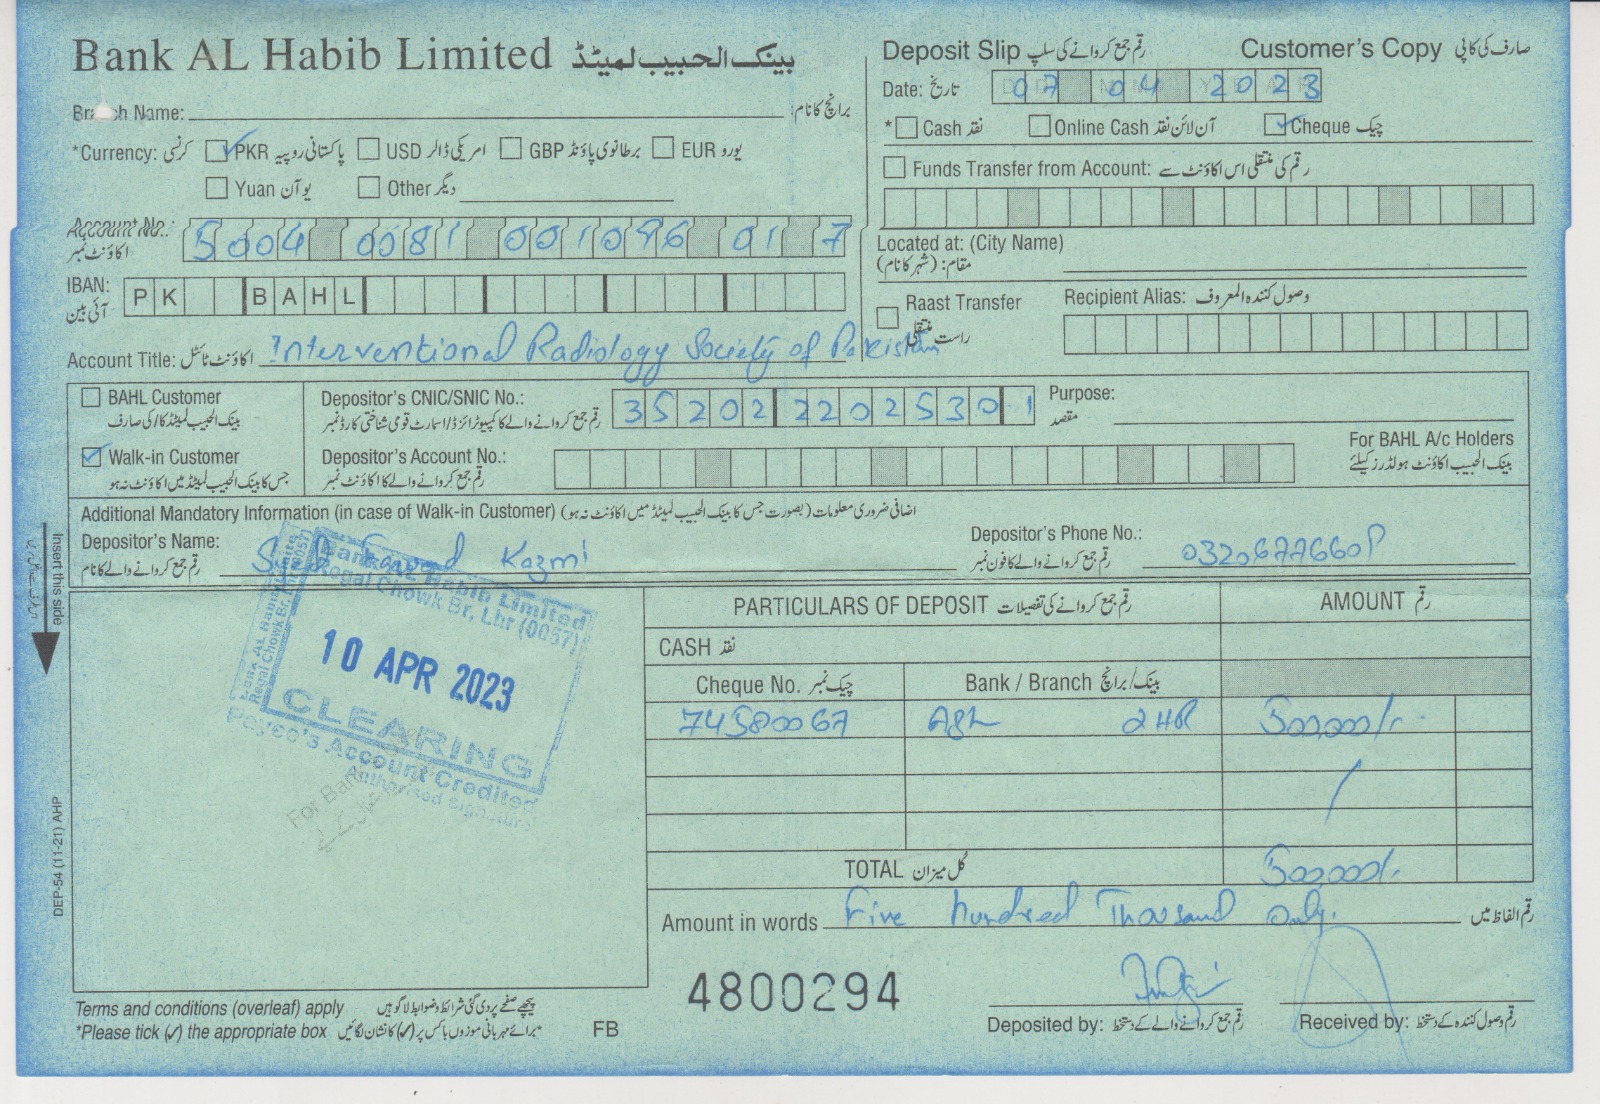 Bank AL Habib Limited بینک الحبیب لمیٹڈ
Deposit Slip رقم جمع کروانے کی سلپ Customer's Copy صارف کی کاپی
Date: تاریخ 07 04 2023
Branch Name: برانچ کا نام:
*Currency: کرنسی PKR پاکستانی روپیہ USD امریکی ڈالر GBP برطانوی پاؤنڈ EUR یورو
Yuan یو آن Other دیگر
* Cash نقد Online Cash آن لائن نقد Cheque چیک
Funds Transfer from Account: رقم کی منتقلی اس اکاؤنٹ سے
Account No.: 5004 0081 001096 01 7
اکاؤنٹ نمبر
Located at: (City Name)
مقام: (شہر کا نام)
IBAN: PK BAHL
آئی بین
Raast Transfer Recipient Alias: وصول کنندہ المعروف
راست منتقلی
Account Title: اکاؤنٹ ٹائٹل: Interventional Radiology Society of Pakistan
BAHL Customer
بینک الحبیب لمیٹڈ کا/کی صارف
Depositor's CNIC/SNIC No.: 35202 2202530 1
رقم جمع کروانے والے کا کمپیوٹرائزڈ/اسمارٹ قومی شناختی کارڈ نمبر
Purpose:
مقصد
Walk-in Customer
جس کا بینک الحبیب لمیٹڈ میں اکاؤنٹ نہ ہو
Depositor's Account No.:
رقم جمع کروانے والے کا اکاؤنٹ نمبر
For BAHL A/c Holders
بینک الحبیب اکاؤنٹ ہولڈرز کیلئے
Additional Mandatory Information (in case of Walk-in Customer) اضافی ضروری معلومات (بصورت جس کا بینک الحبیب لمیٹڈ میں اکاؤنٹ نہ ہو)
Depositor's Name: Kazmi
رقم جمع کروانے والے کا نام
Depositor's Phone No.:
رقم جمع کروانے والے کا فون نمبر
Insert this side
Bank AL Habib Limited
Regal Chowk Br, Lhr (0057)
Bank AL Habib Limited
Regal Chowk Br, Lhr (0057)
10 APR 2023
CLEARING
Payee's Account Credited
Authorised Signature
For Bank
PARTICULARS OF DEPOSIT رقم جمع کروانے کی تفصیلات AMOUNT رقم
CASH نقد
Cheque No. چیک نمبر Bank / Branch بینک/برانچ
74580067 500,000/-
TOTAL کُل میزان 500,000/-
Amount in words Five hundred Thousand only. رقم الفاظ میں
DEP-54 (11-21) AHP
4800294
Terms and conditions (overleaf) apply پیچھے صفحے پر دی گئی شرائط و ضوابط لاگو ہیں
*Please tick (✓) the appropriate box برائے مہربانی موزوں باکس پر (✓) کا نشان لگائیں* FB
Deposited by: رقم جمع کروانے والے کے دستخط Received by: رقم وصول کنندہ کے دستخط